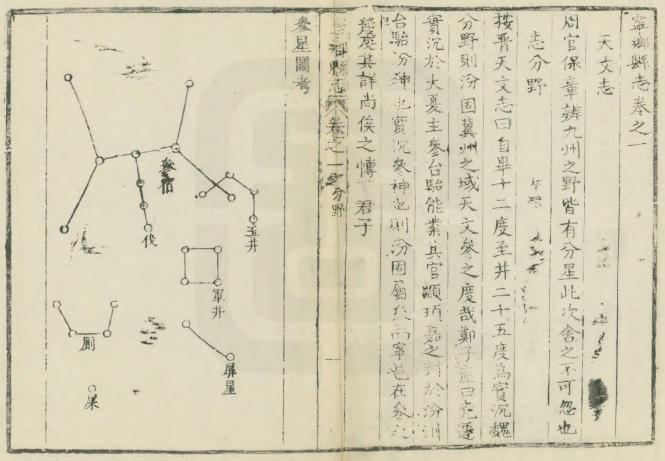 寧鄉縣志卷之一
天文志
周官保章辨九州之野皆有分星此次舍之不可忽也
志分野
按晉天文志曰自畢十二度至井二十五度為實沉魏
分野則汾固冀州之域天文參之度哉鄭子產曰堯遷
實沉於大夏主參台駘能業其官顓頊嘉之封於汾川
台駘汾神也實沉參神也則汾固屬矣而寧也在參
度其詳尚俟之博 君子
鄉縣志 卷之一 分野
參星圖考
參宿
伐
玉井
軍井
屏星
廁